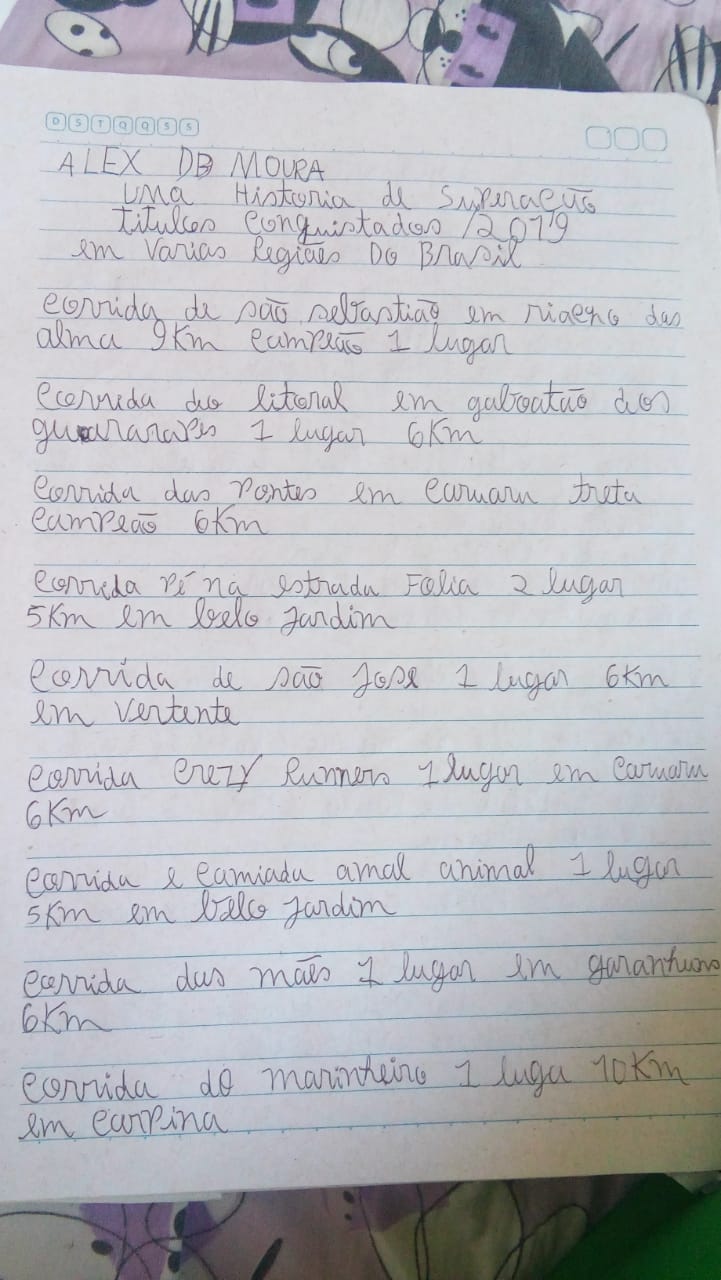 D S T Q Q S S
ALEX DE MOURA
uma Historia de Superação
titulos conquistados /2019
em varias Regiães Do Brasil
corrida de são sebastião em riacho das
alma 9Km campeão 1 lugar
corrida do litoral em gaboatão dos
guararapes 1 lugar 6Km
corrida das pontes em caruaru treta
campeão 6Km
corrida pé na estrada Folia 2 lugar
5Km em belo jardim
corrida de são jose 1 lugar 6Km
em vertente
corrida crezy Runners 1 lugar em caruaru
6Km
corrida e camiada amal animal 1 lugar
5Km em belo jardim
corrida das mães 1 lugar em garanhuns
6Km
corrida do marinheiro 1 luga 10Km
em carpina